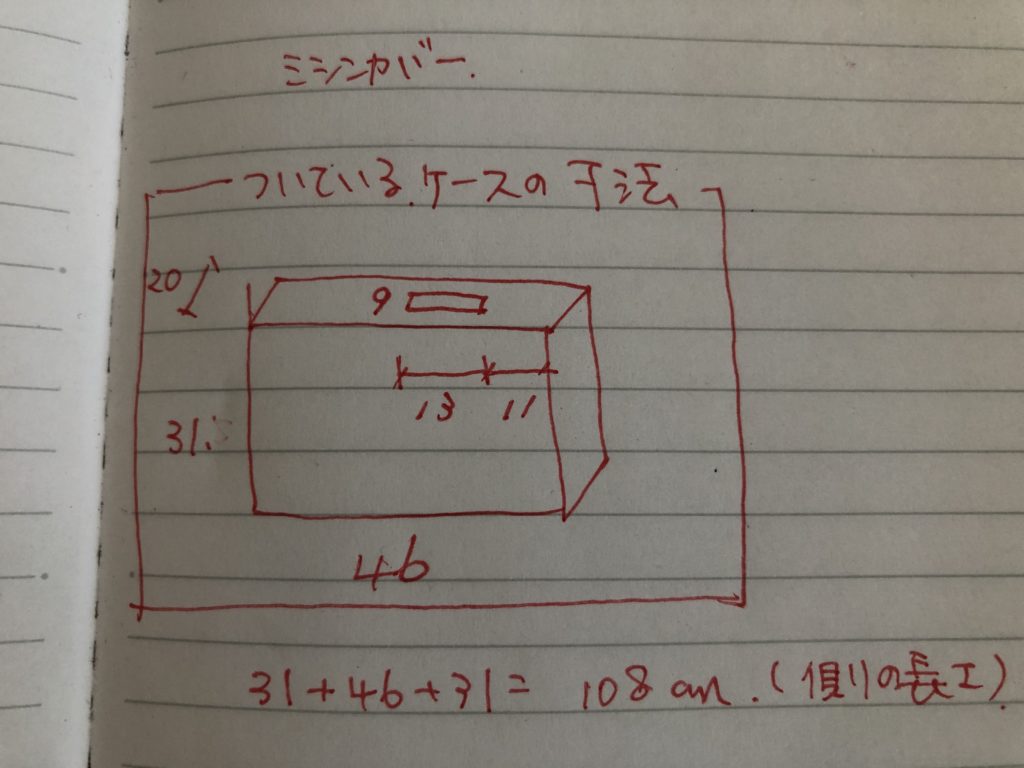 ミシンカバー.
ついている.ケースの寸法
20
9
13 11
31.
46
31+46+31= 108cm.(側の長さ)